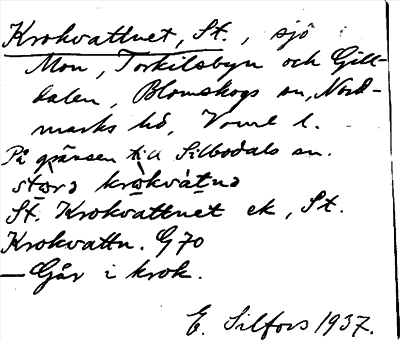 Krokvattnet, St., sjö i
Mon, Torkilsbyn och Gill-
dalen, Blomskogs sn, Nord-
marks hd, Vrml l.
På gränsen till Silbodals sn.
stora krokvatnə
St. Krokvattnet ek, St.
Krokvattn. G70
— Går i krok.
E. Silfors 1937.